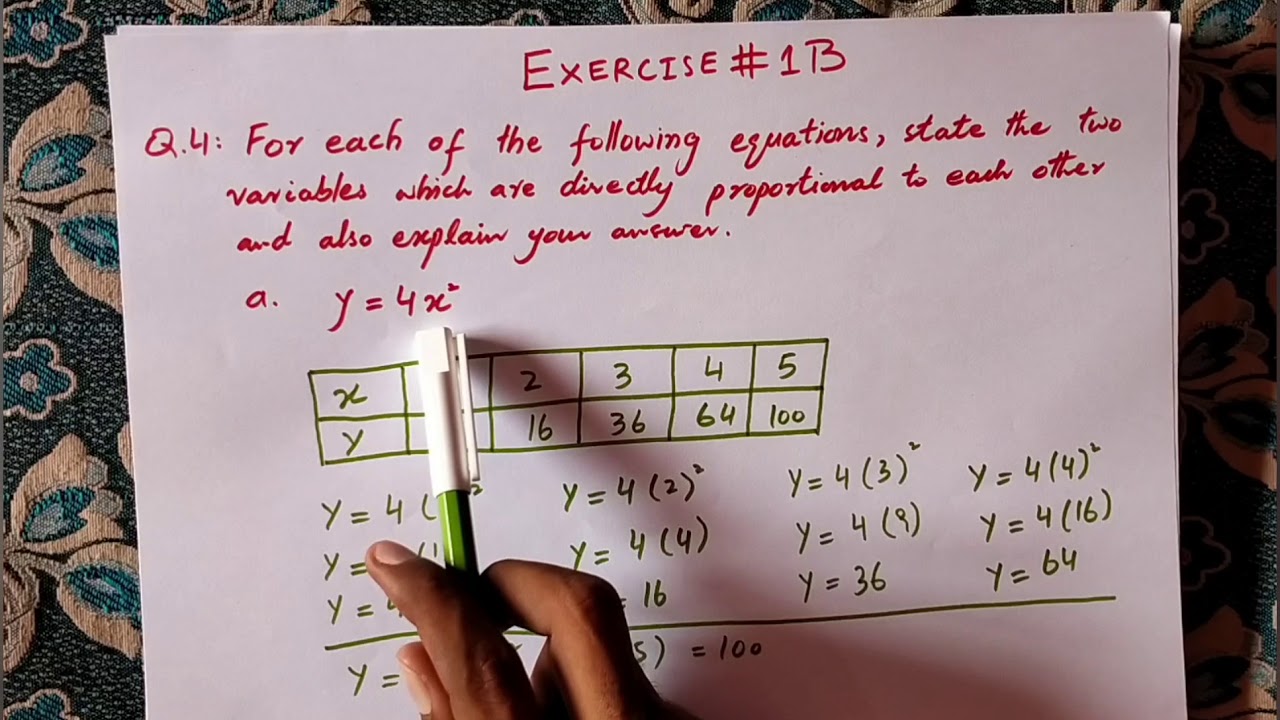 EXERCISE # 1B
Q.4: For each of the following equations, state the two
variables which are directly proportional to each other
and also explain your answer.
a. y = 4x²
x 2 3 4 5
y 16 36 64 100
y = 4 ( ² y = 4 (2)² y = 4 (3)² y = 4 (4)²
y = (1 y = 4 (4) y = 4 (9) y = 4 (16)
y = 4 = 16 y = 36 y = 64
y = 5) = 100